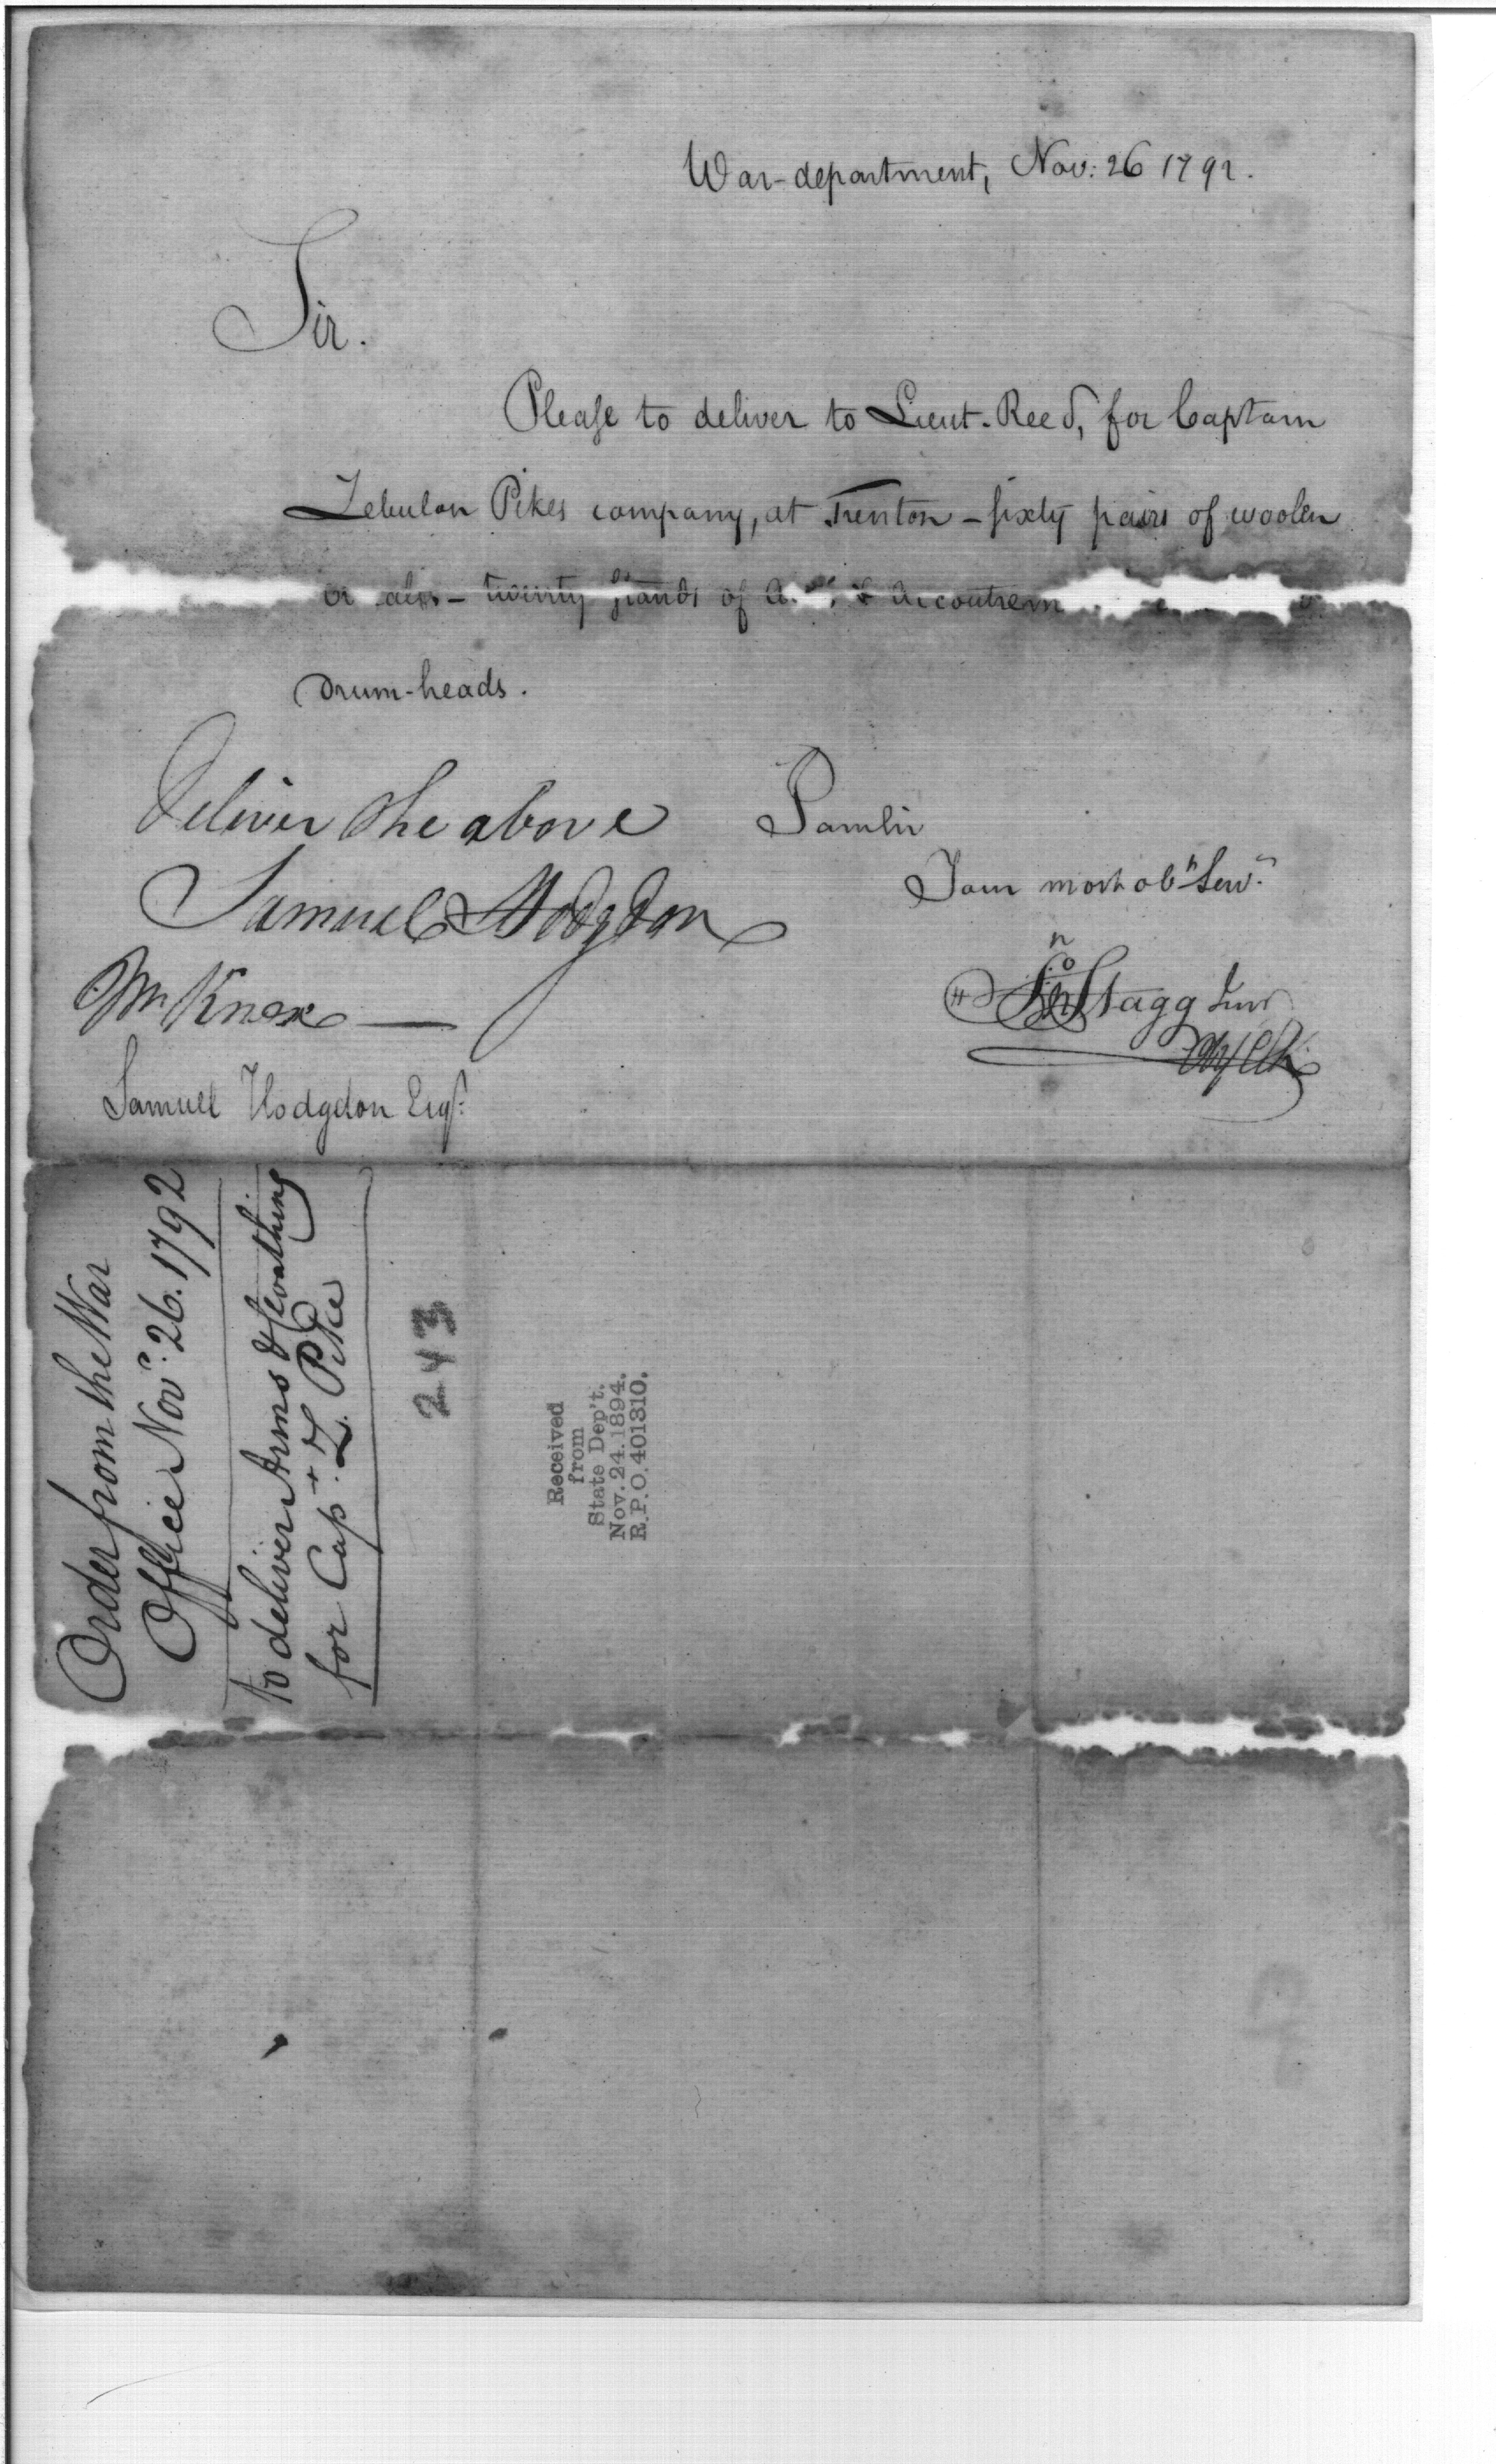 War-department, Nov: 26 1792.
Sir.
Please to deliver to Lieut. Reed, for Captain
Zebulon Pikes company, at Trenton - sixty pairs of woolen
twenty stands of & Accoutrem
Drum-heads.
Deliver the above
Samuel Hodgdon
Mr Knox
I am Sir
Your most ob Serv.
Jno Stagg Junr
Samuel Hodgdon Esqr.
Order from the War
Office Novr. 26. 1792
to deliver Arms & Cloathing
for Capt. Z. Pike
243
Received
from
State Dep't.
Nov. 24. 1894.
R.P.O. 401310.